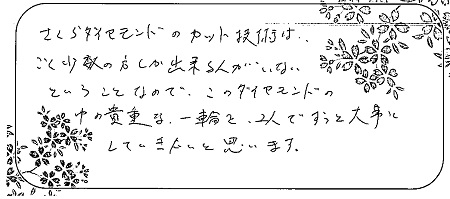 さくらダイヤモンドのカット技術は、
ごく少数の方しか出来る人がいない
ということなので、このダイヤモンドの
中の貴重な、一輪を、2人でずっと大事に
していきたいと思います。